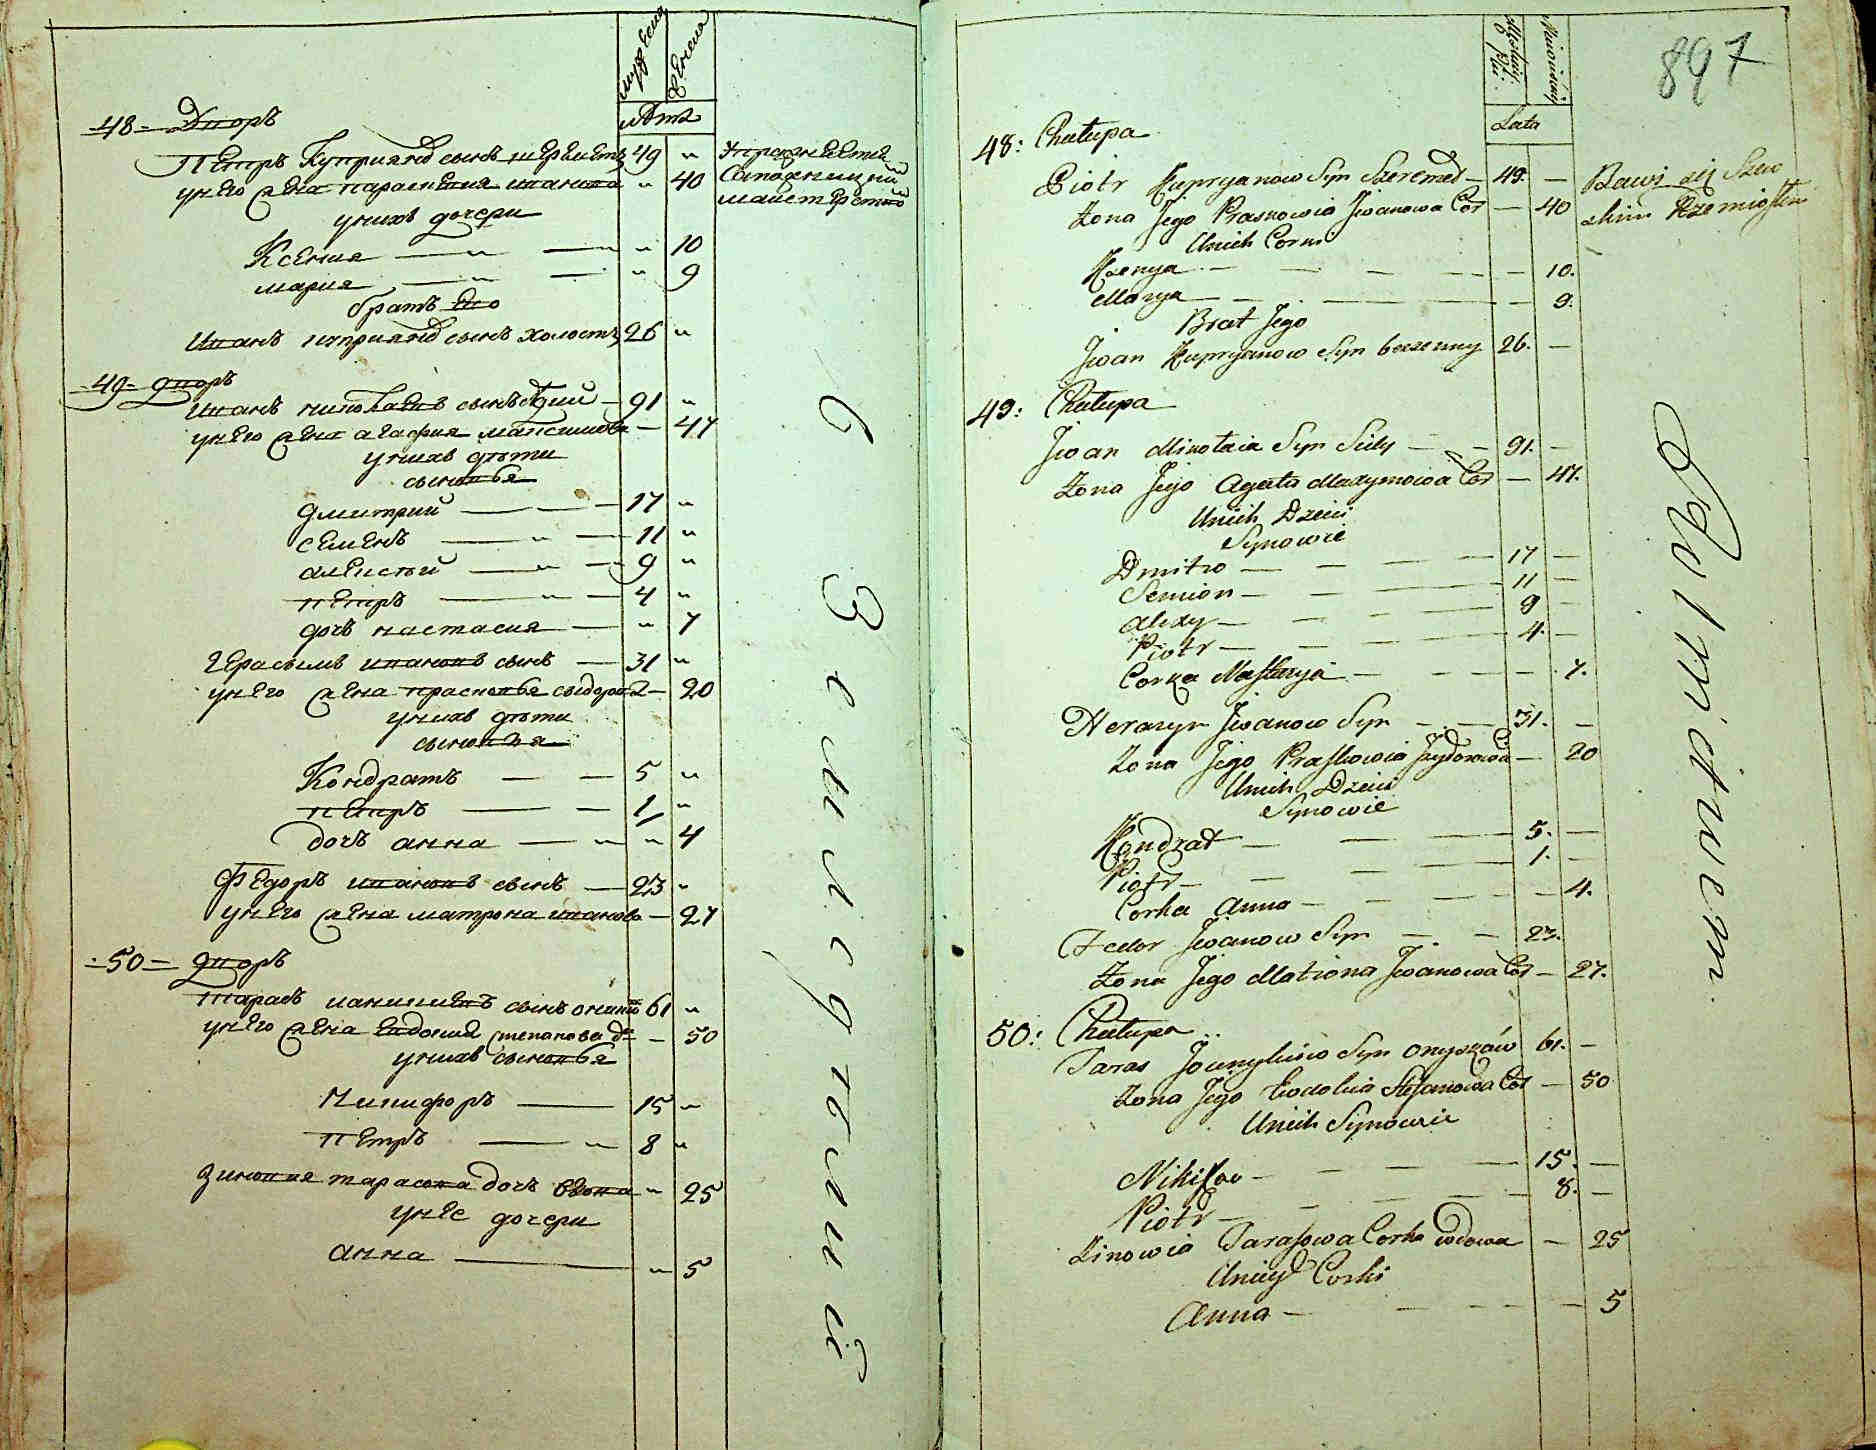 мужеска
женска
лѣта
48 Дворъ
Петръ Куприяновъ сынъ шереметъ 49 "
у него жена параскевия иванова " 40
у нихъ дочери
Ксения " 10
мария " 9
братъ его
Иванъ куприяновъ сынъ холостъ 26 "
Упражняется
Сапожницкимъ
майстерствомъ
49 дворъ
Иванъ сынъ 91 "
у него жена агафия максимова 47
у нихъ дѣти
сыновья
дмитрий 17 "
семенъ 11 "
алексей 9 "
петръ 4 "
дочь настасия " 7
герасимъ ивановъ сынъ 31 "
у него жена прасковья сидорова 20
у нихъ дѣти
сыновья
Кондратъ 5 "
петръ 1 "
дочь анна " 4
Федоръ ивановъ сынъ 23 "
у него жена матрона иванова 27
50 дворъ
тарасъ сынъ 61 "
у него жена евдокия степанова 50
у нихъ сыновья
Никифоръ 15 "
петръ 8 "
зиновия тарасова дочь вдова " 25
у нее дочери
анна " 5
Земледѣлий
897
Lata
48: Chałupa
Piotr Kupryanow Syn Szeremet 49. —
Żona Jego Praskowia Jwanowa Cor — 40
Unich Corki
Kzenya 10.
Marya 9.
Brat Jego
Jwan Kupryanow Syn bezzenny 26. —
Bawi się Szew
skim Rzemiosłem
49: Chałupa
Jwan Syn 91. —
Żona Jego Agata Maxymowa Cor — 47.
Unich Dzieci
Synowie
Dmitro 17 —
Semion 11 —
Alexy 9 —
Piotr 4. —
Corka Nastazya 7.
Herazym Jwanow Syn 31. —
Żona Jego Praskowia Szydorowa — 20
Unich Dzieci
Synowie
Kondrat 5. —
Piotr 1. —
Corka Anna 4.
Fedor Jwanow Syn 23.
Żona Jego Matrona Jwanowa Cor — 27.
50: Chałupa
Taras Syn Onyszków 61. —
Żona Jego Ewdokia Stefanowa Cor — 50
Unich Synowie
Nikifor 15. —
Piotr 8. —
Zinowia Tarasowa Corka wdowa — 25
Uniey Corki
Anna 5
Rolnictwem